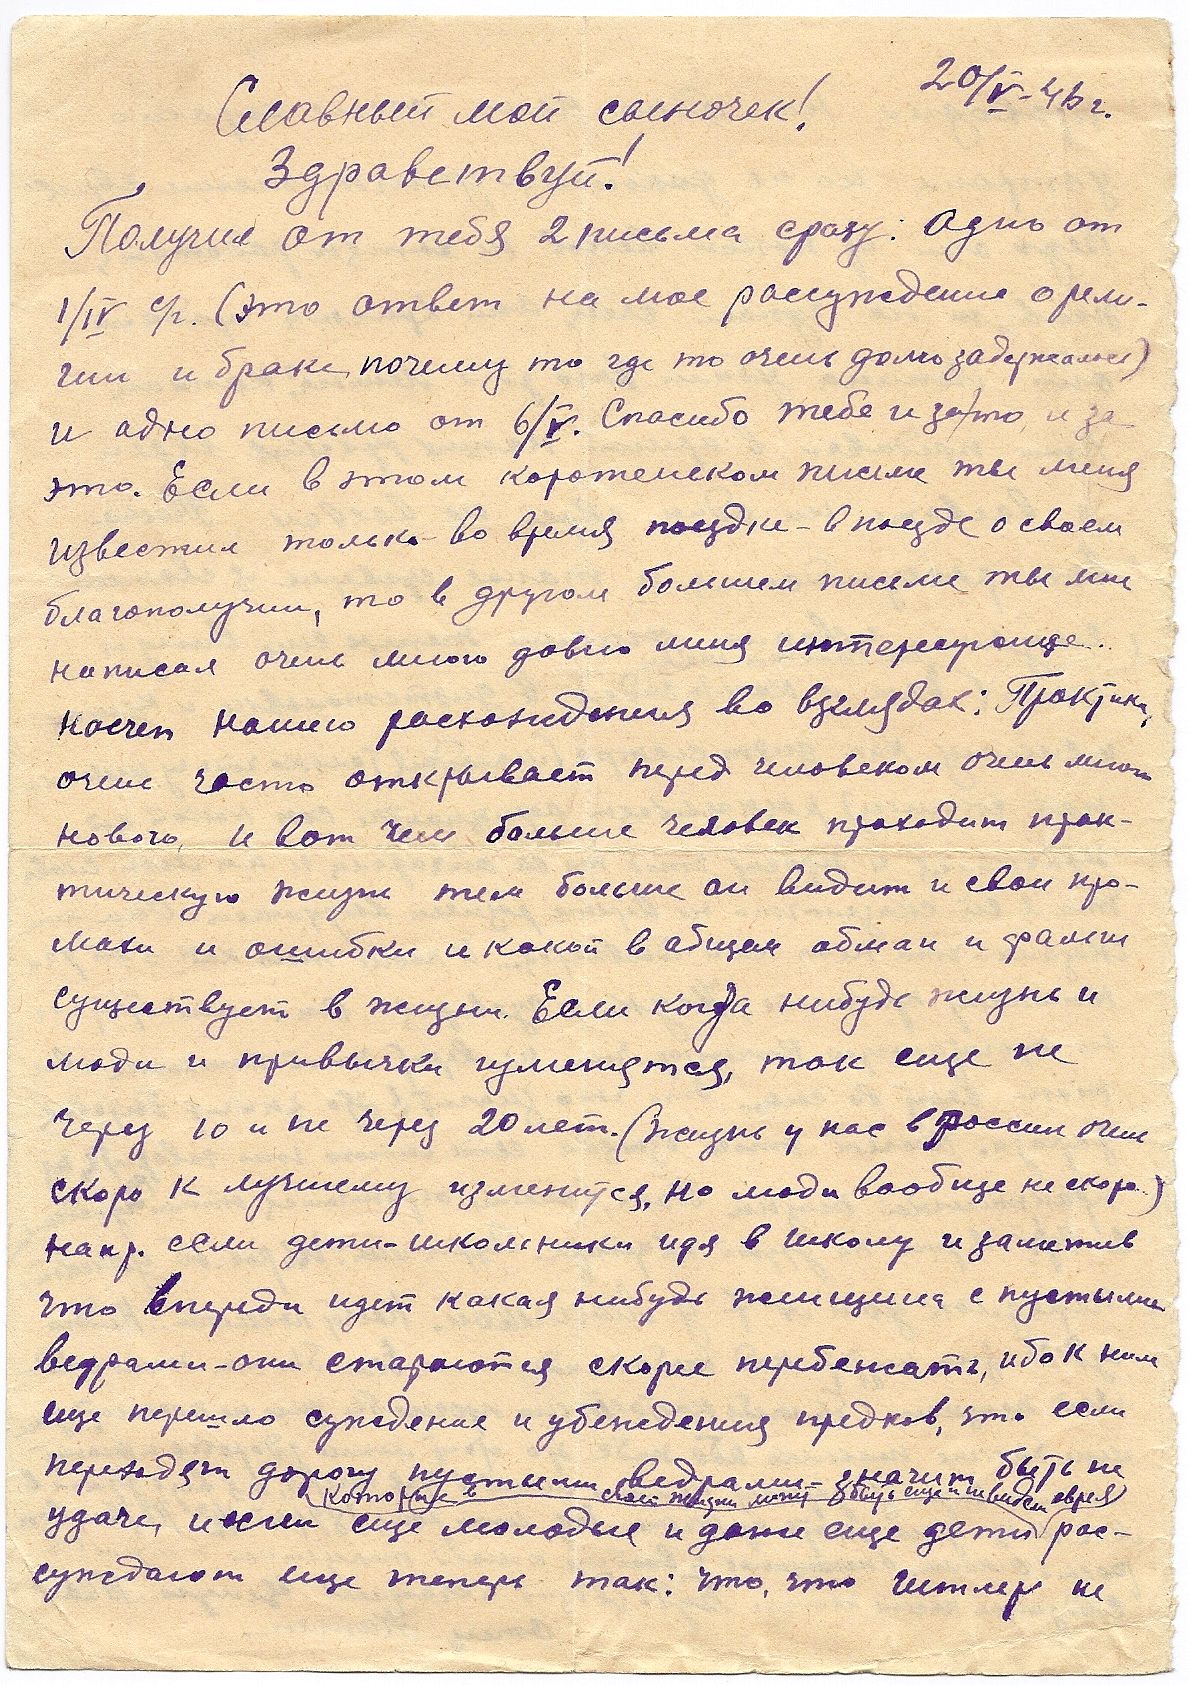 20/V-46 г.
Славный мой сыночек!
Здравствуй!
Получил от тебя 2 письма сразу: одно от
1/IV с/г. (это ответ на мое рассуждение о рели-
гии и браке, почему то где то очень долго задержалось)
и одно письмо от 6/V. Спасибо тебе и за то и за
это. Если в этом коротеньком письме ты меня
известил только во время поездки - в поезде о своем
благополучии, то в другом большем письме ты мне
написал очень много давно меня интересующе..
насчет нашего расхождения во взглядах: Практика,
очень часто открывает перед человеком очень много
нового, и вот чем больше человек проходит прак-
тическую жизнь тем больше он видит и свои про-
махи и ошибки и какой в общем обман и фальш
существует в жизни. Если когда нибудь жизнь и
люди и привычки изменятся, так еще не
через 10 и не через 20 лет. (Жизнь у нас в России очень
скоро к лучшему изменится, но люди вообще не скоро.)
напр. если дети-школьники идя в школу и заметив
что впереди идет какая нибудь женщина с пустыми
ведрами - они стараются скорее перебежать, ибо к ним
еще перешло суждение и убеждения предков, что если
переходят дорогу пустыми ведрами - значит быть не
удаче, и если еще молодые и даже еще дети (которые в своей жизни может быть еще и не видели еврея) рас-
суждают еще теперь так: что, что Гитлер не